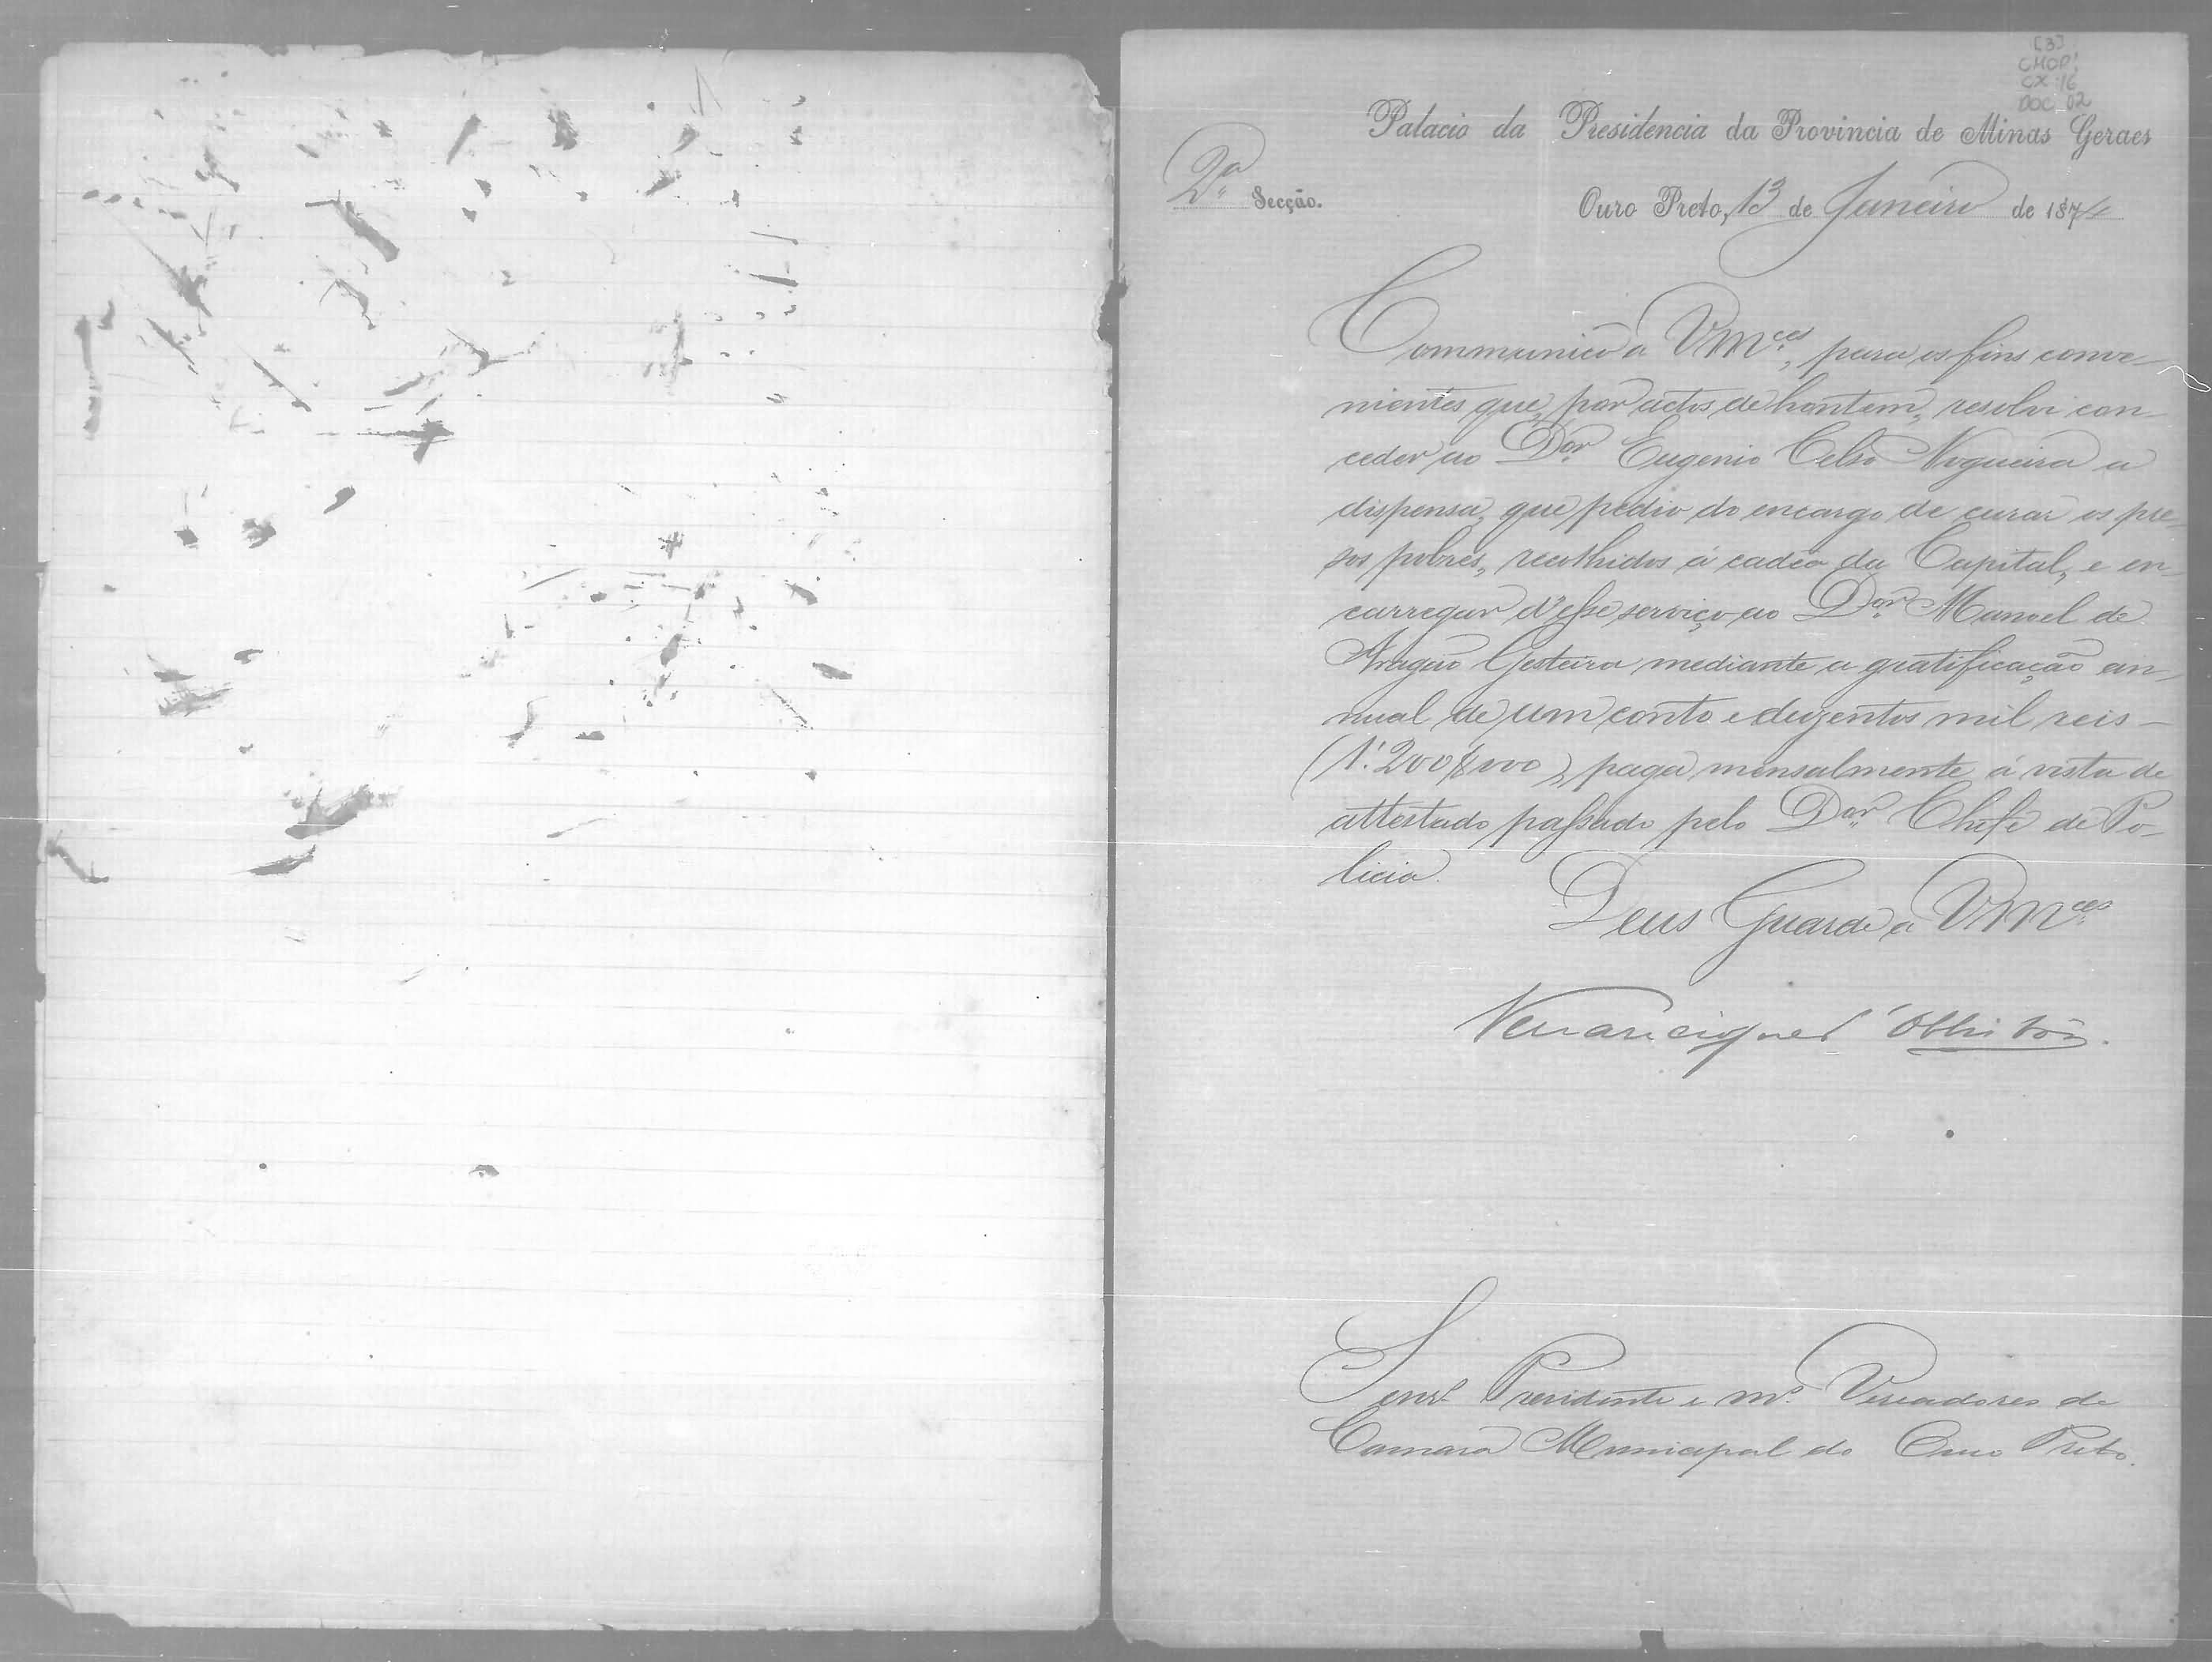 [3]
CMOP
CX 16
DOC 02
Palacio da Presidencia da Provincia de Minas Geraes
2ª Secção.
Ouro Preto, 13 de Janeiro de 1874
Communico a VMces, para os fins conve-
nientes que, por actos de hontem, resolvi con-
ceder ao Dor Eugenio Celso Nogueira a
dispensa, que pedio do encargo de curar os pre-
sos pobres, recolhidos á cadêa da Capital, e en-
carregar d'esse serviço ao Dor Manoel de
Aragão Gesteira mediante a gratificação an-
nual de um conto e duzentos mil reis -
(1:200$000), paga mensalmente á vista de
attestado passado pelo Dor Chefe de Po-
licia.
Deus Guarde a VMces
Senrs Presidente e ms Vereadores da
Camara Municipal do Ouro Preto.